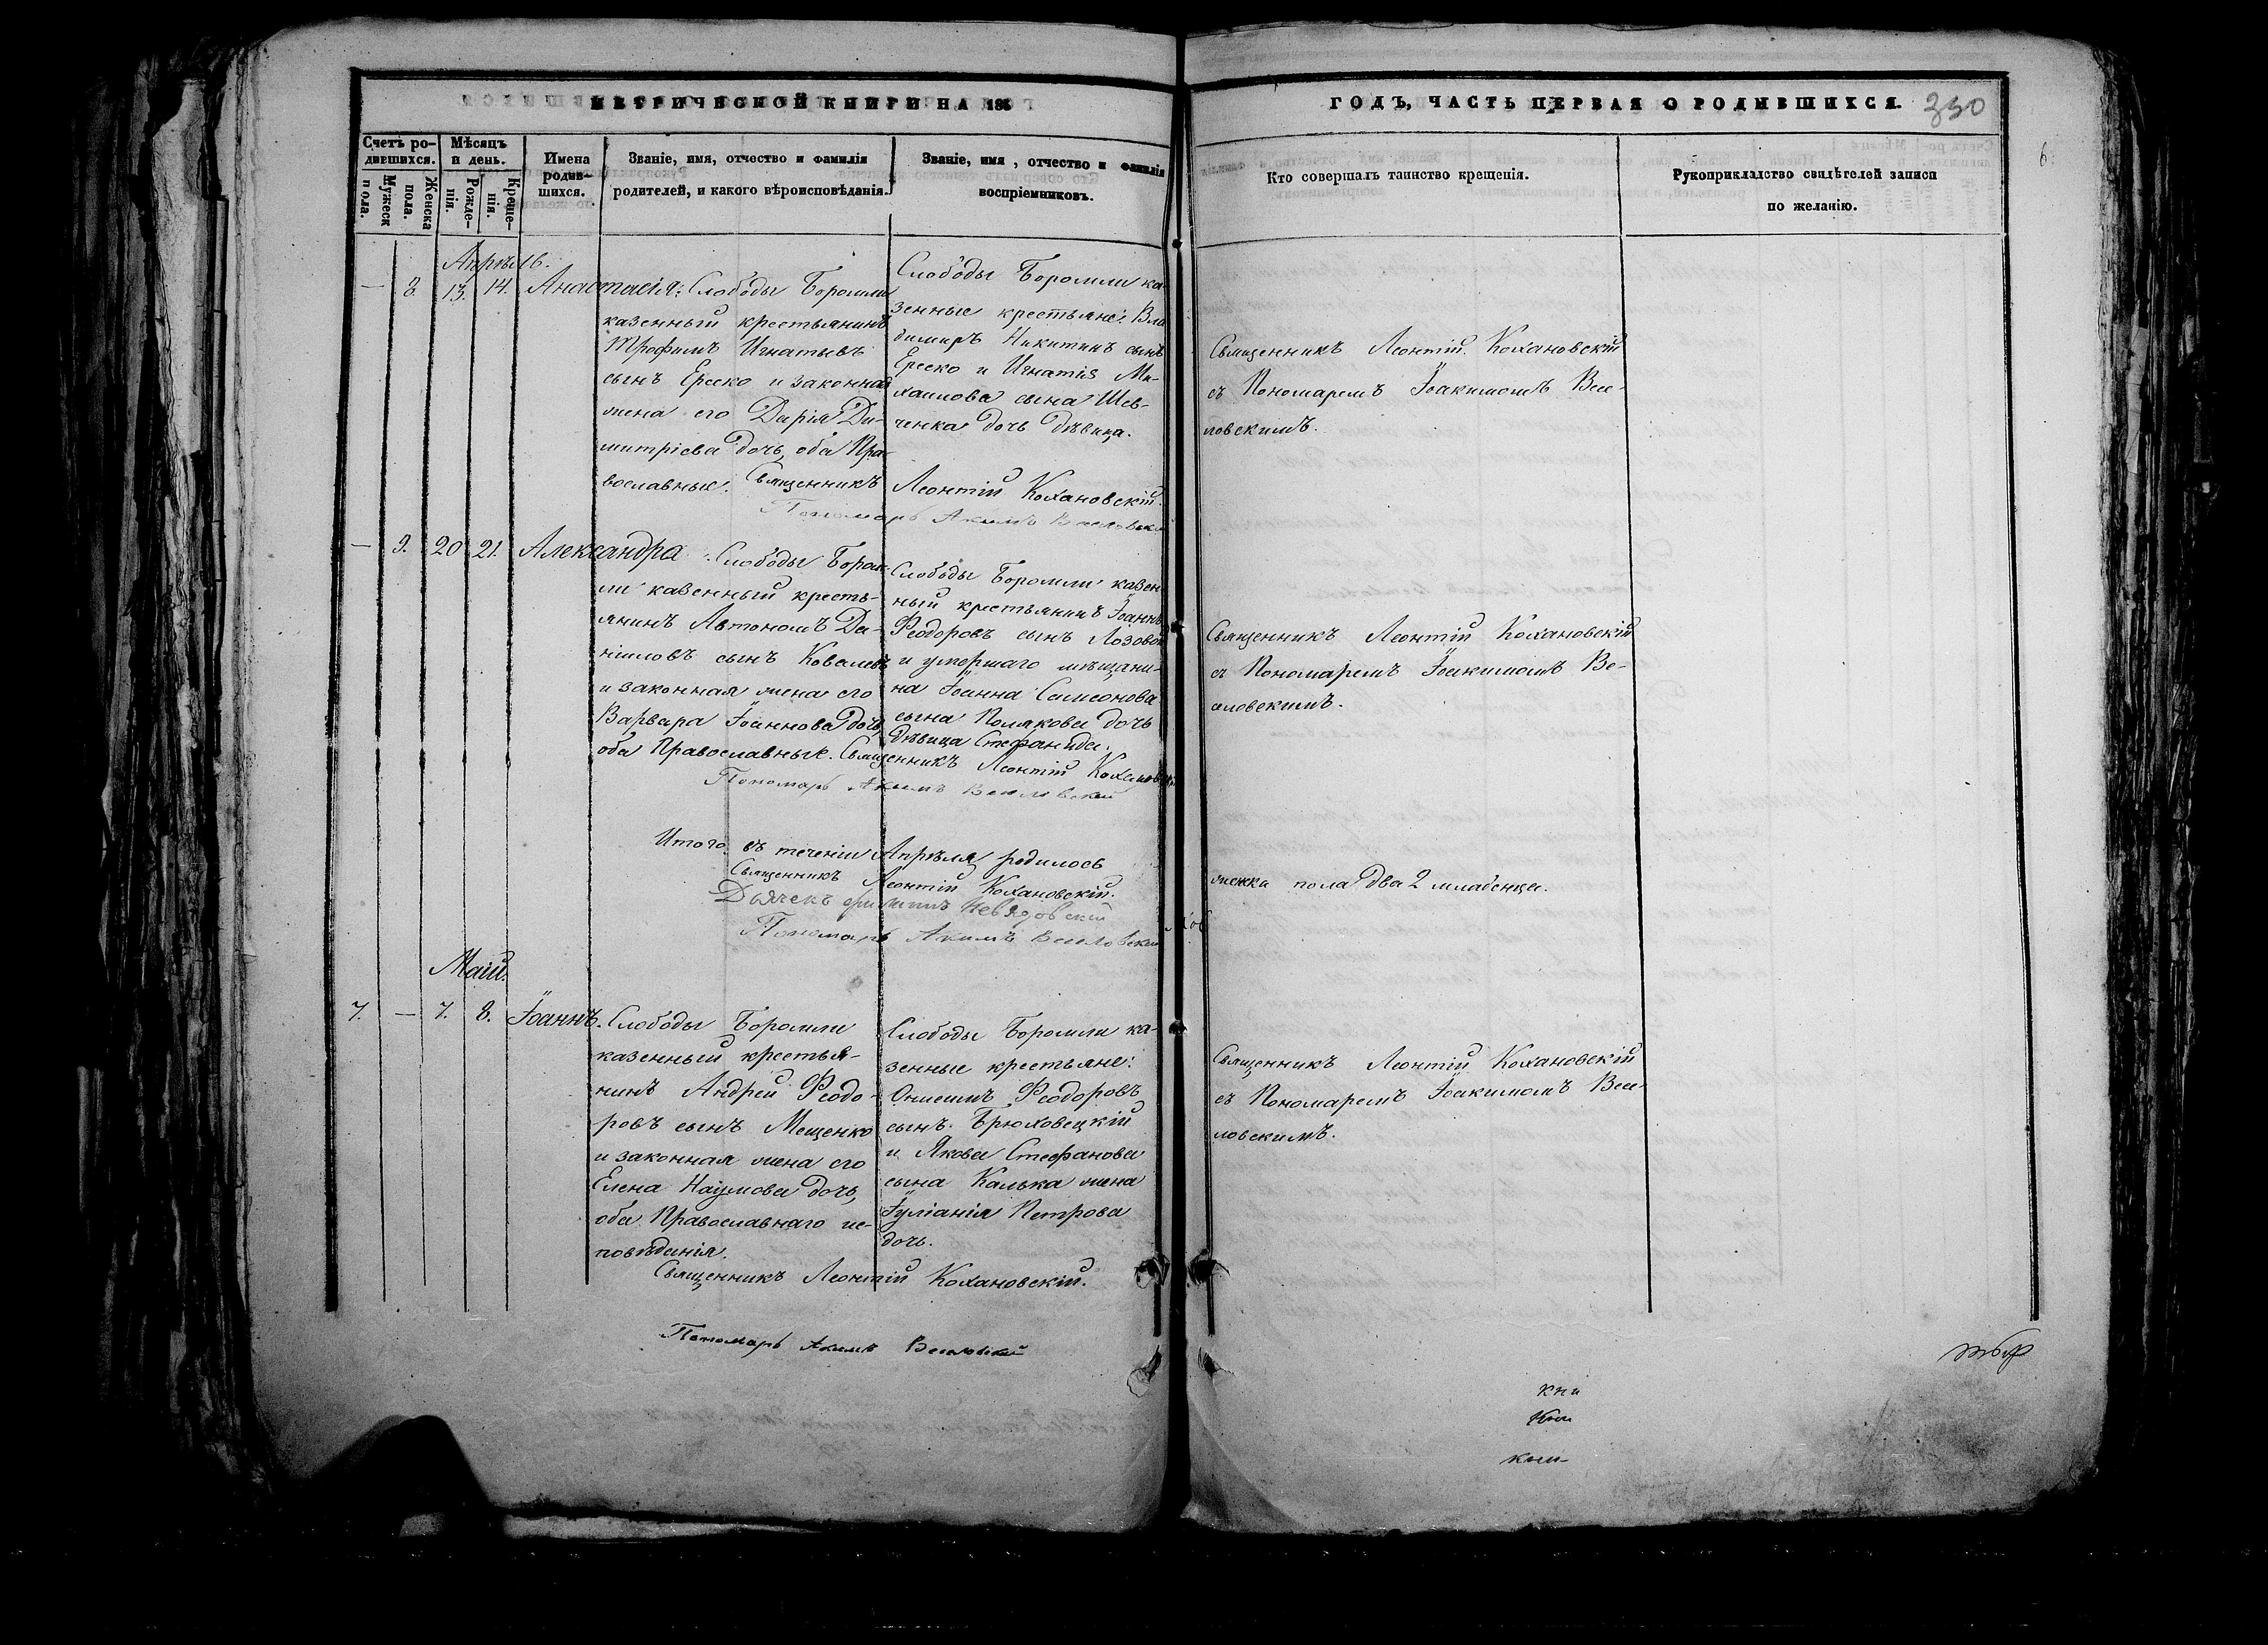 МЕТРИЧЕСКОЙ КНИГИ НА 185
ГОДЪ, ЧАСТЬ ПЕРВАЯ О РОДИВШИХСЯ.
330
6
Счетъ ро-
дившихся.
Мужеск
пола.
Женска
пола.
Мѣсяцъ
и день.
Рожде-
нія.
Креще-
нія.
Имена
родив-
шихся.
Званіе, имя, отчество и фамилія
родителей, и какого вѣроисповѣданія.
Званіе, имя, отчество и фамилія
воспріемниковъ.
Кто совершалъ таинство крещенія.
Рукоприкладство свидѣтелей записи
по желанію.
Апрѣль.
— 8. 13. 14. Анастасія:
Слободы Боромли
казенный крестьянинъ
Трофимъ Игнатьевъ
сынъ Ереско и законная
жена его Дарія Ди-
митріева дочь, оба Пра-
вославные.
Слободы Боромли ка-
зенные крестьяне: Вла-
димиръ Никитинъ сынъ
Ереско и Игнатія Ми-
хаилова сына Шев-
ченка дочь дѣвица.
Священникъ Леонтій Кохановскій
съ Пономаремъ Іоакимомъ Весе-
ловскимъ.
Священникъ Леонтій Кохановскій.
Пономарь Акимъ Веселовскій
— 9. 20 21. Александра:
Слободы Бором-
ли казенный кресть-
янинъ Автономъ Да-
ніиловъ сынъ Ковалевъ
и законная жена его
Варвара Іоаннова дочь,
оба Православные.
Слободы Боромли казен-
ный крестьянинъ Іоаннъ
Феодоровъ сынъ Лозовой
и умершаго мѣщани-
на Іоанна Симеонова
сына Полякова дочь
дѣвица Стефанида.
Священникъ Леонтій Кохановскій
съ Пономаремъ Іоакимомъ Ве-
словскимъ.
Священникъ Леонтій Кохановскій
Пономарь Акимъ Веселовский
Итого въ теченіи Апрѣля родилось
женска пола два 2 младенца.
Священникъ Леонтій Кохановскій.
Дьячекъ Невядовскій
Пономарь Акимъ Веселовскій
Маій.
7. — 7. 8. Іоаннъ.
Слободы Боромли
казенный крестья-
нинъ Андрей Феодо-
ровъ сынъ Мещенко
и законная жена его
Елена Наумова дочь,
оба Православнаго ис-
повѣданія.
Слободы Боромли ка-
зенные крестьяне:
Онисимъ Феодоровъ
сынъ Брюховецкій
и Якова Стефанова
сына Калька жена
Іуліанія Петрова
дочь.
Священникъ Леонтій Кохановскій
съ Пономаремъ Іоакимомъ Весе-
ловскимъ.
Священникъ Леонтій Кохановскій.
Пономарь Акимъ Веселовский
кни
кни
кни-